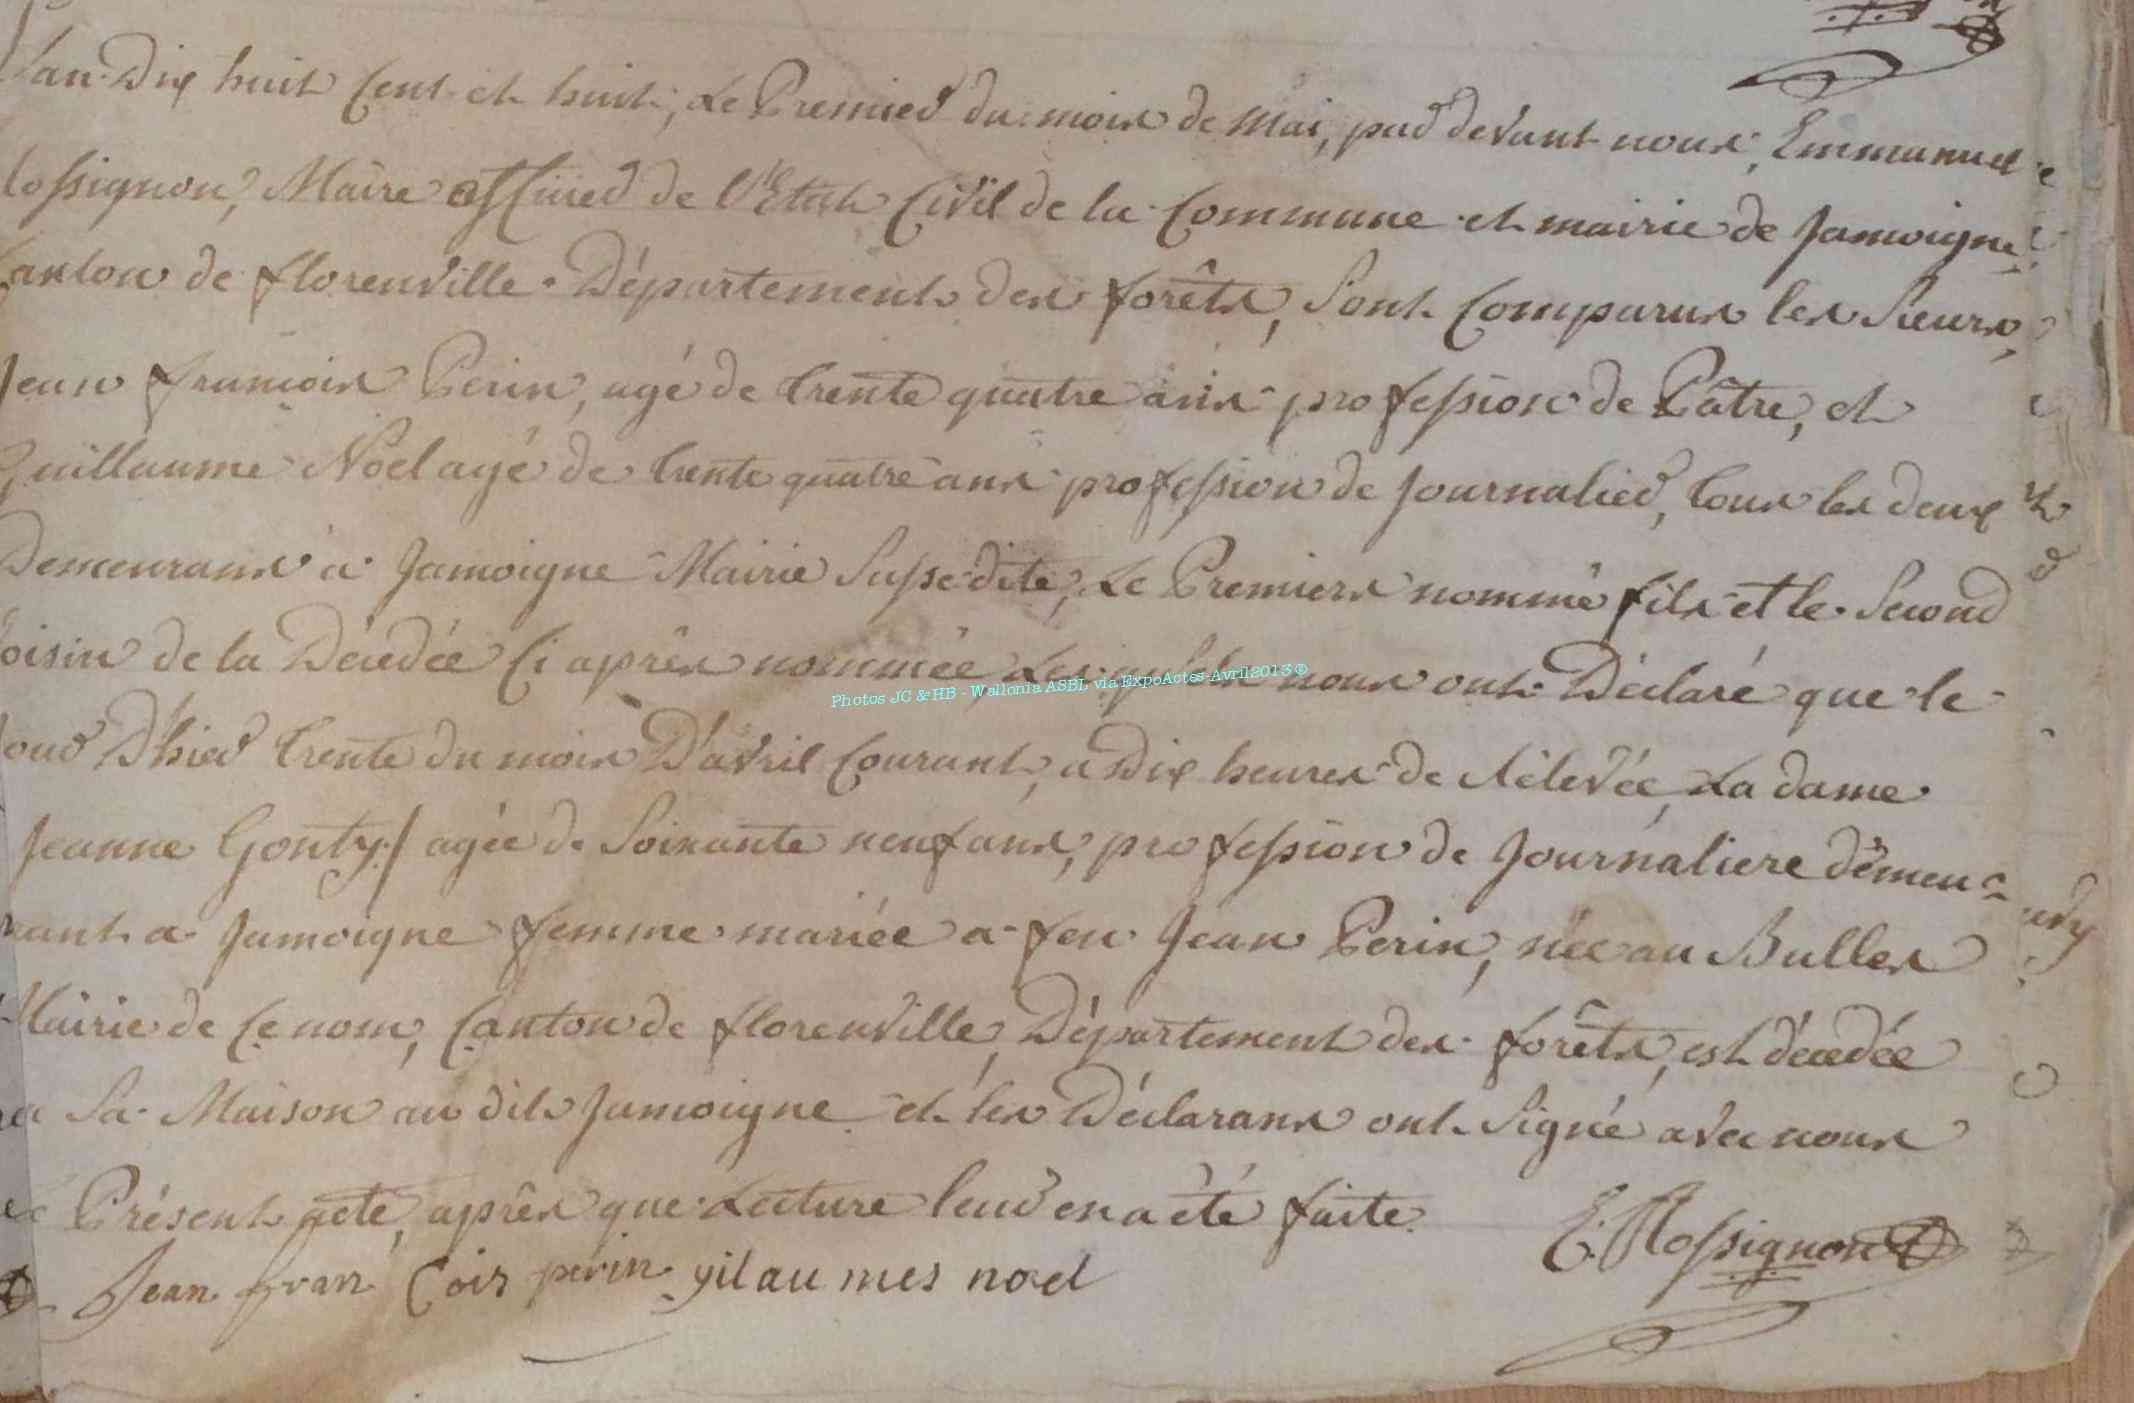 L'an Dix huit Cent et huit, Le Premier du mois de Mai, par devant nous, Emmanuel
Rossignon, Maire officier de l'Etat Civil de la Commune et mairie de Jamoigne,
Canton de florenville Département des forêts, Sont Comparus les Sieurs,
Jean françois Perin, agé de trente quatre ans profession de Pâtre, et
Guillaume Noel agé de trente quatre ans profession de Journalier, tous les deux
Demeurans à Jamoigne Mairie Susse dite, Le Premiers nommé fils et le Second
Voisin de la Décédée Ci après nommée, Lesquels nous ont Déclaré que le
Jour D'hier trente du mois D'avril Courant, a Dix heures de rélevée, La dame
Jeanne Gonty / agée de Soixante neuf ans, profession de Journaliere démeu=
rant a Jamoigne femme mariée a feu Jean Perin, née au Bulles
Mairie de Ce nom, Canton de florenville, Département des forêts, est décédée
en Sa Maison au dit Jamoigne et les Déclarans ont Signé avec nous
Le Présent acte, après que Lecture leur en a été faite.
E. Rossignon
Jean fran Cois perin gilau mes noel
Photos JC & HB - Wallonia ASBL via ExpoActes-Avril2013 ©